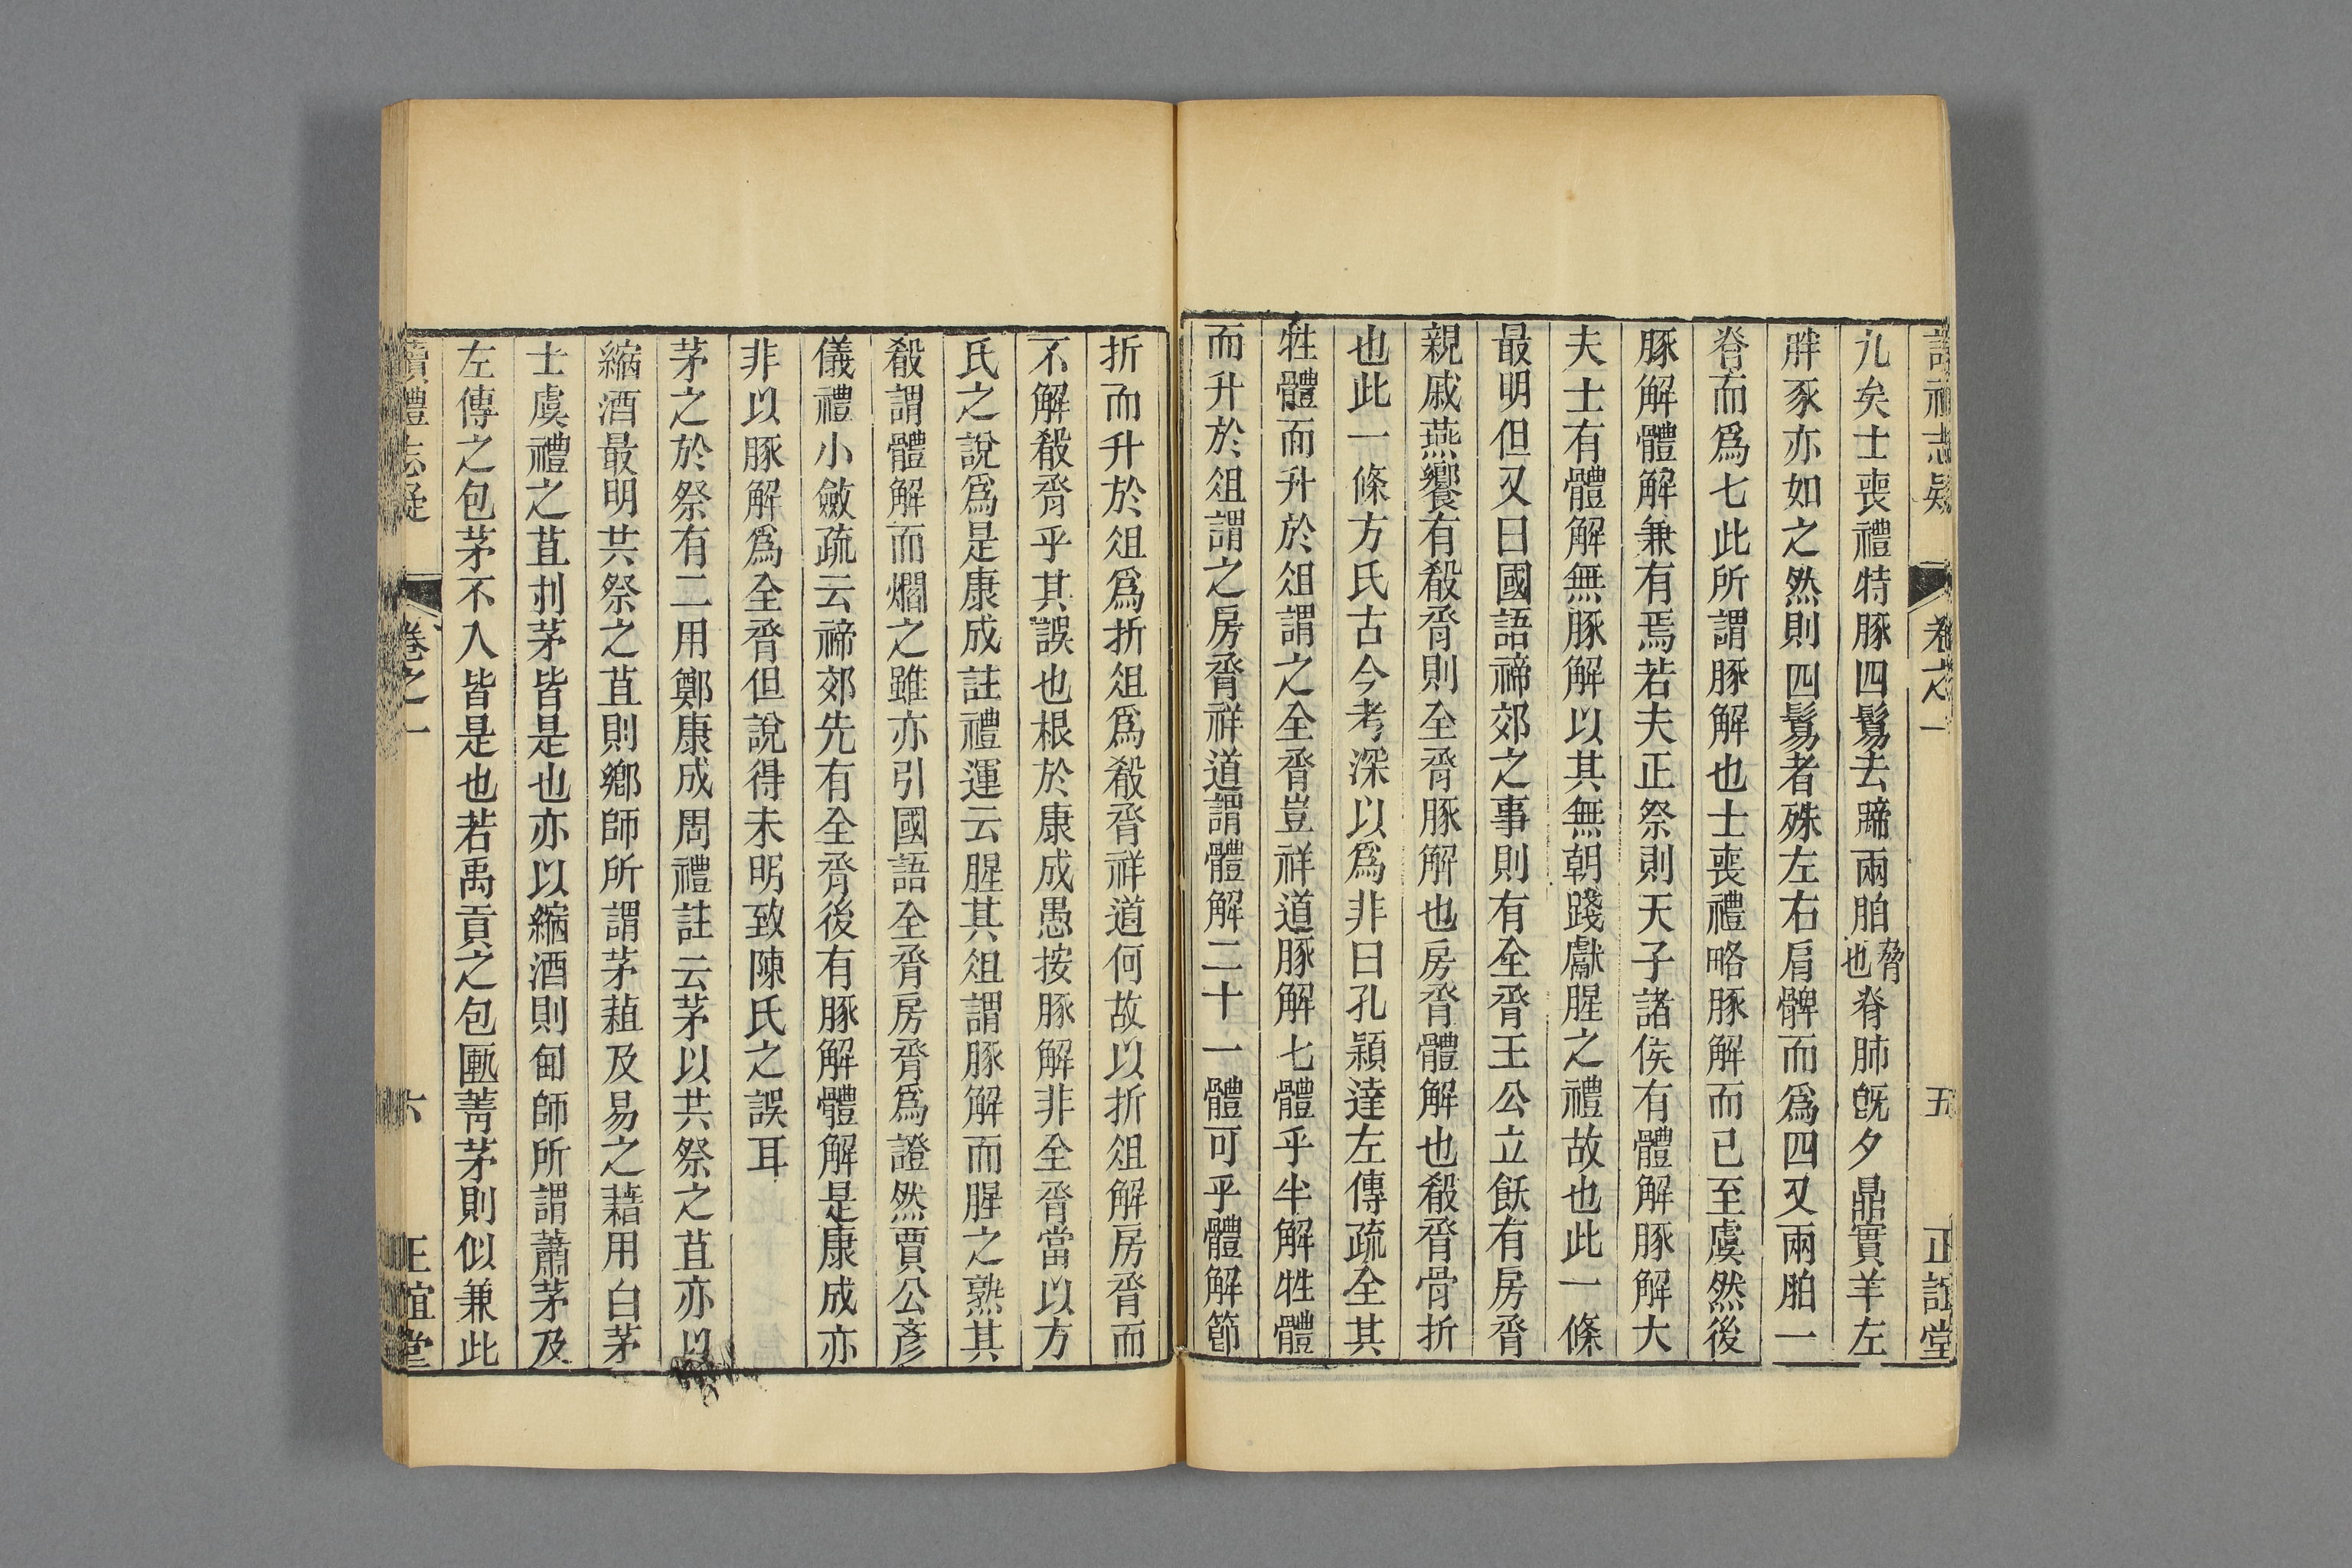 讀禮志疑 卷之一 五 正誼堂
九矣士喪禮特豚四鬄去蹄兩胉脅也脊肺旣夕鼎實羊左
胖豕亦如之然則四鬄者殊左右肩髀而爲四又兩胉一
脊而爲七此所謂豚解也士喪禮略豚解而已至虞然後
豚解體解兼有焉若夫正祭則天子諸侯有體解豚解大
夫士有體解無豚解以其無朝踐獻腥之禮故也此一條
最明但又曰國語禘郊之事則有全脀王公立飫有房脀
親戚燕饗有殽脀則全脀豚解也房脀體解也殽脀骨折
也此一條方氏古今考深以爲非曰孔穎達左傳疏全其
牲體而升於俎謂之全脀豈祥道豚解七體乎半解牲體
而升於俎謂之房脀祥道謂體解二十一體可乎體解節
折而升於俎爲折俎爲殽脀祥道何故以折俎解房脀而
不解殽脀乎其誤也根於康成愚按豚解非全脀當以方
氏之說爲是康成註禮運云腥其俎謂豚解而腥之熟其
殽謂體解而爓之雖亦引國語全脀房脀爲證然賈公彥
儀禮小斂疏云禘郊先有全脀後有豚解體解是康成亦
非以豚解爲全脀但說得未明致陳氏之誤耳
茅之於祭有二用鄭康成周禮註云茅以共祭之苴亦以
縮酒最明共祭之苴則鄉師所謂茅蒩及易之藉用白茅
士虞禮之苴刌茅皆是也亦以縮酒則甸師所謂蕭茅及
左傳之包茅不入皆是也若禹貢之包匭菁茅則似兼此
讀禮志疑 卷之一 六 正誼堂